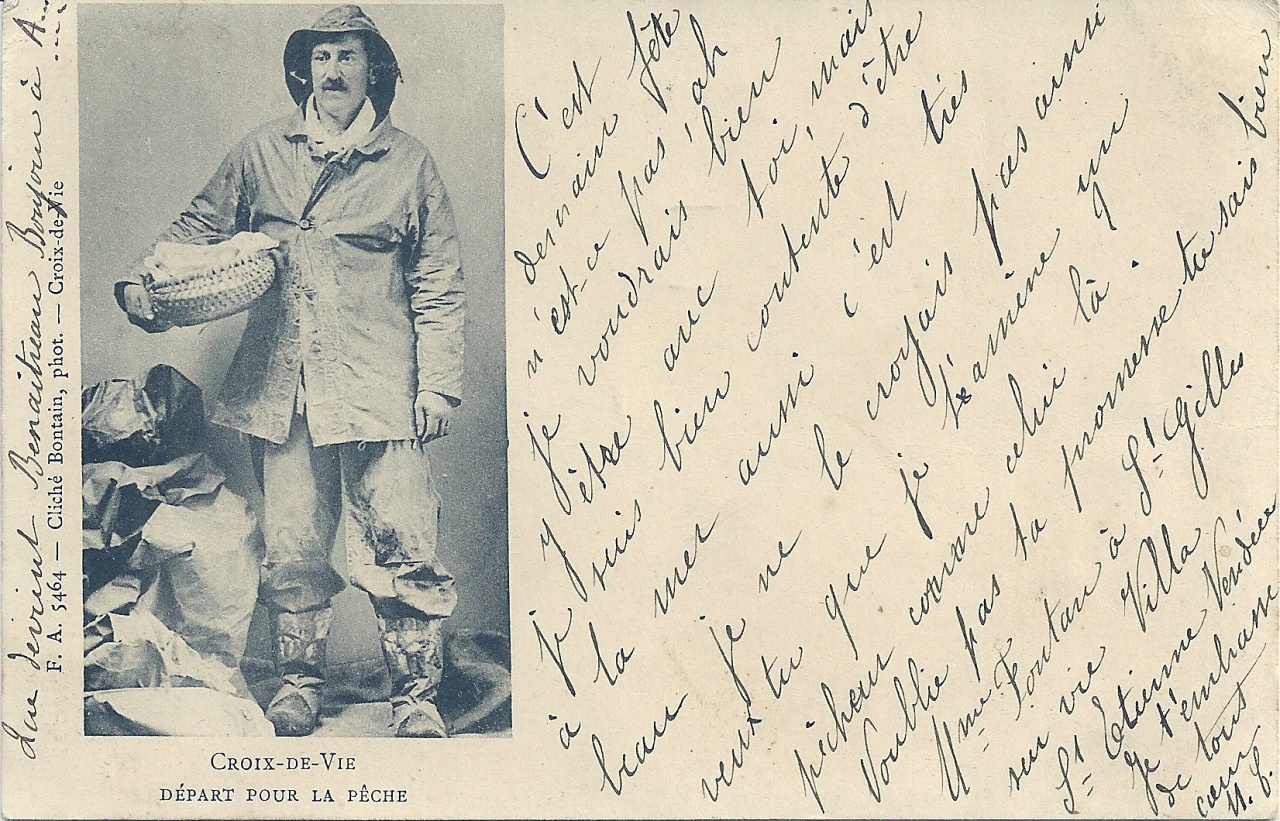 Que devient Benaitreau Bonjour à A...
F. A. 5464 — Cliché Bontain, phot. — Croix-de-Vie
C'est
demain fête
n'est-ce pas ah
je voudrais bien
y être avec toi, mais
je suis bien contente d'être
à la mer aussi c'est très
beau je ne le croyais pas ainsi
veux tu que je t'amène un
pêcheur comme celui là.
N'oublie pas ta promesse tu sais bien
Mme Fontan à St Gilles
sur vie Villa
St Etienne Vendée
Je t'embrasse
de tout
cœur
CROIX-DE-VIE
DÉPART POUR LA PÊCHE